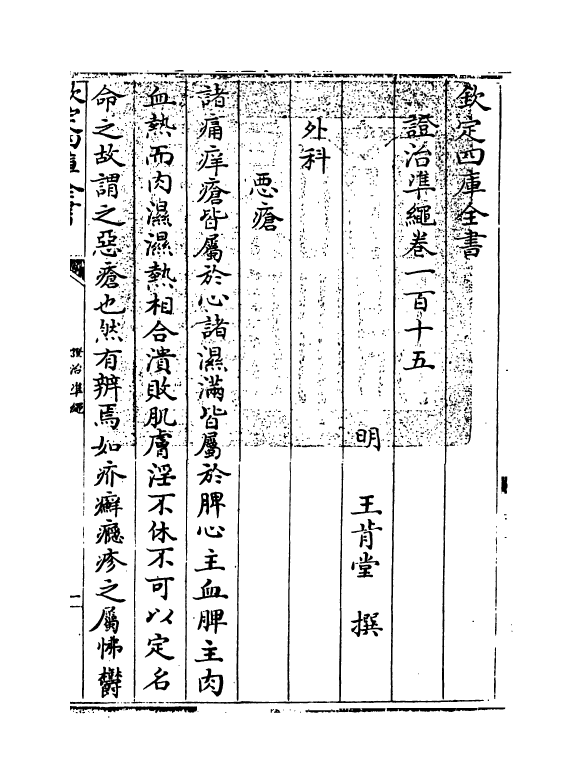 欽定四庫全書
證治凖繩卷一百十五
明 王肯堂 撰
外科
惡瘡
諸痛痒瘡皆屬於心諸濕滿皆屬於脾心主血脾主肉
血熱而肉濕濕熱相合潰敗肌膚淫不休不可以定名
命之故謂之惡瘡也然有辨焉如疥癬癮疹之屬怫鬱
欽定四庫全書
證治凖繩
一